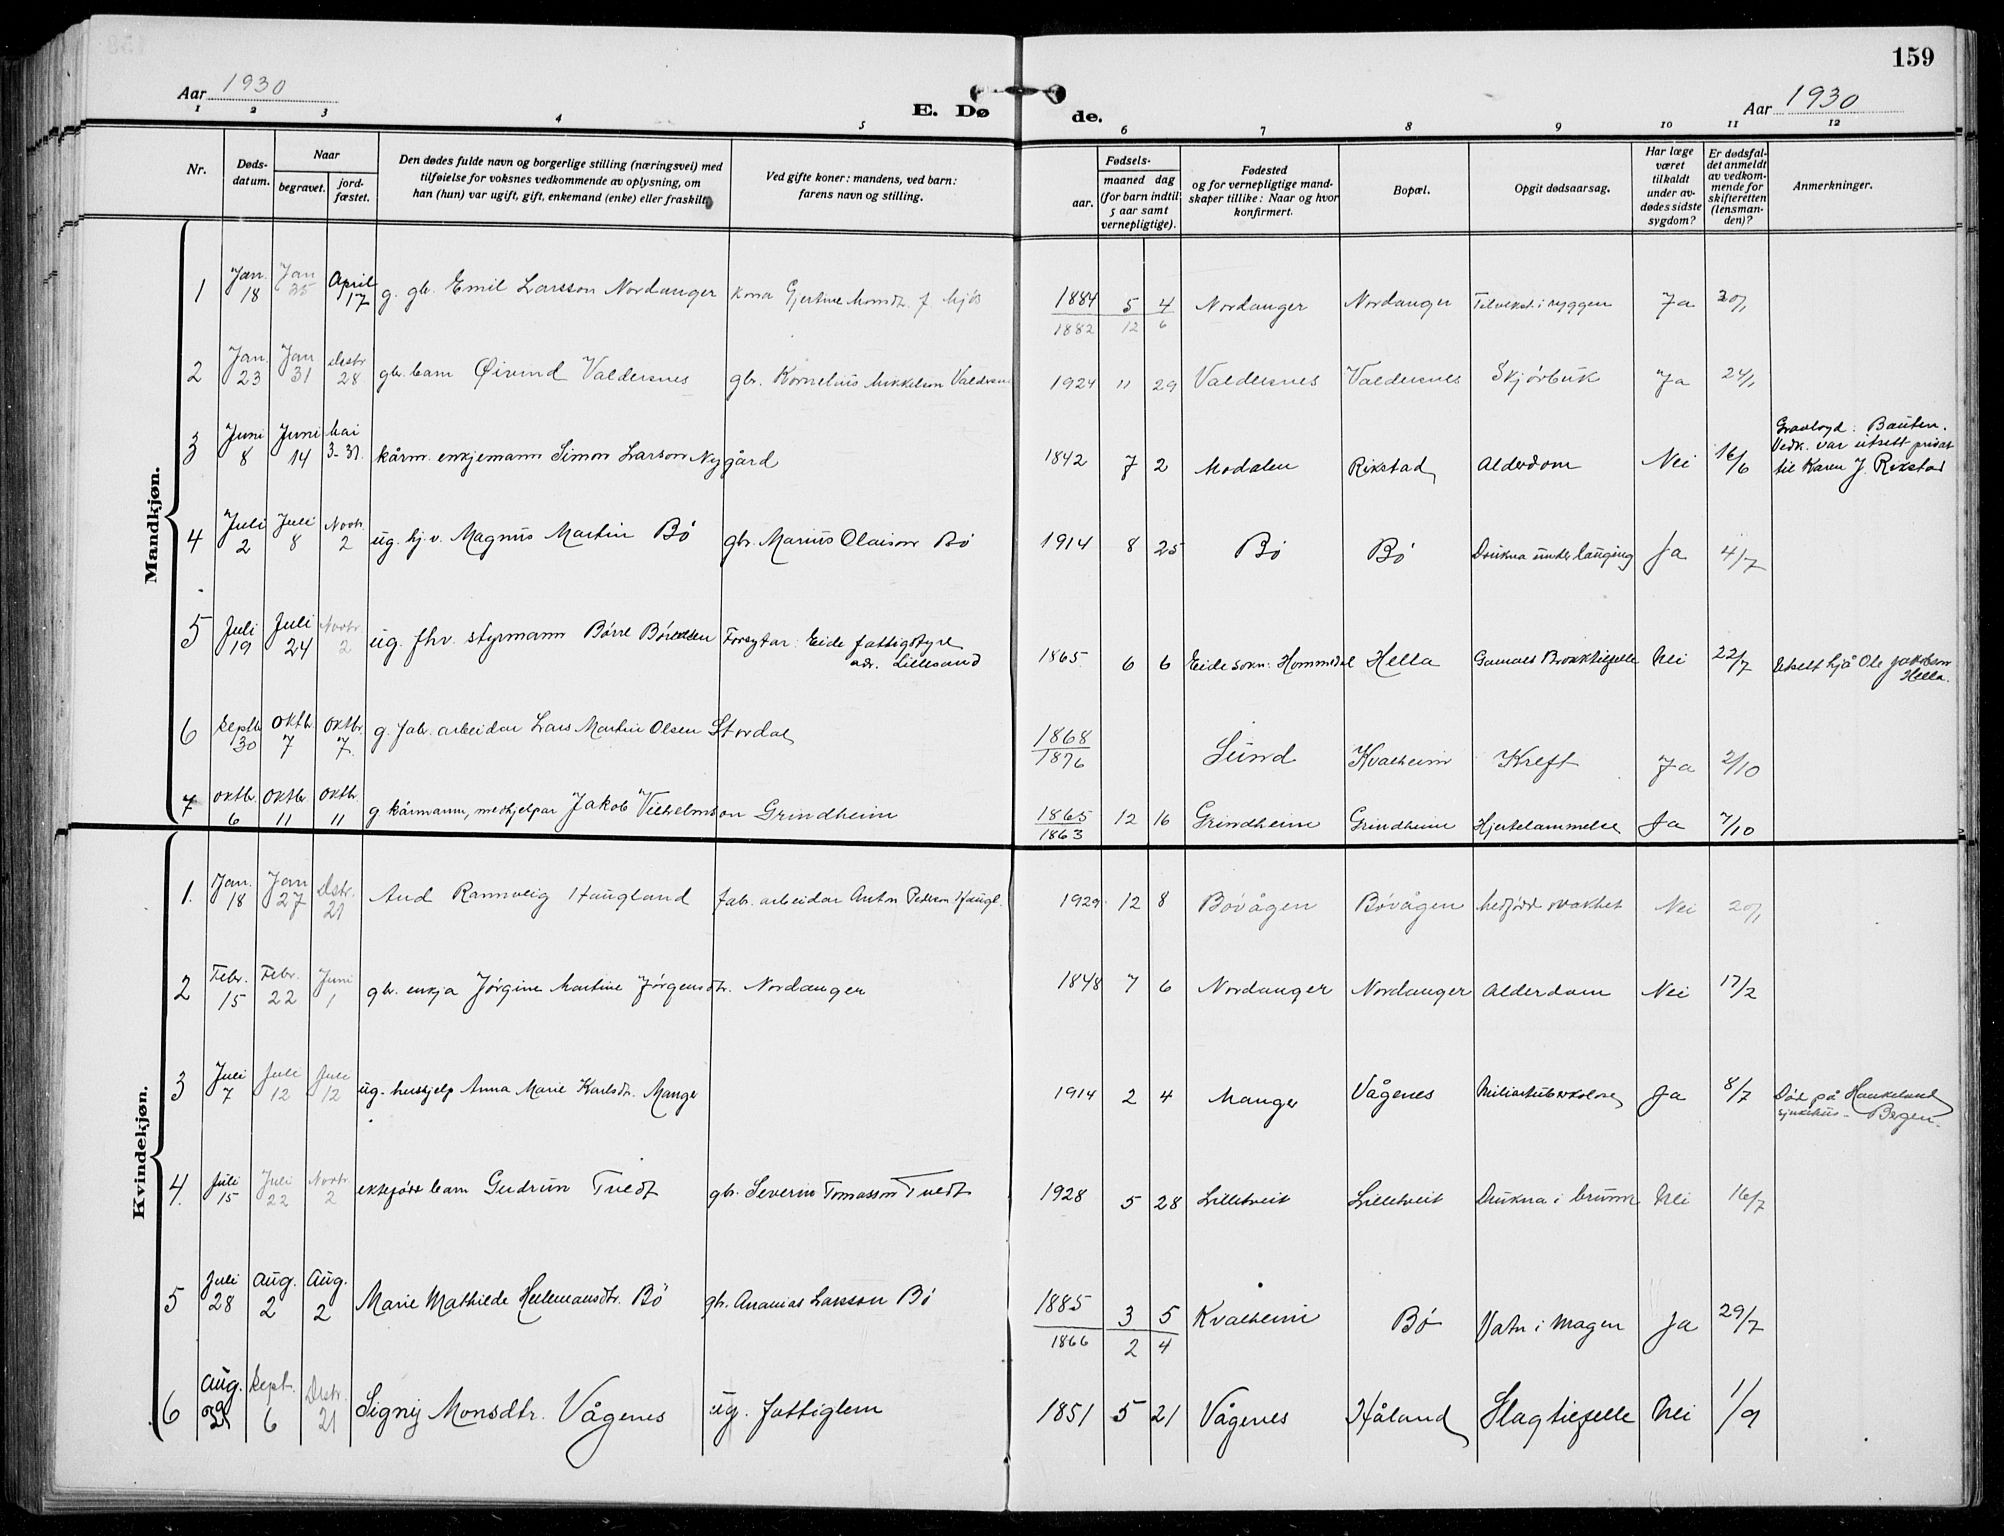 159
Aar 1930
E. Dø de.
Aar 1930
1 2 3 4 5 6 7 8 9 10 11 12
Nr.
Døds-
datum.
Naar
begravet.
jord-
fæstet.
Den dødes fulde navn og borgerlige stilling (næringsvei) med
tilføielse for voksnes vedkommende av oplysning, om
han (hun) var ugift, gift, enkemand (enke) eller fraskilt.
Ved gifte koner: mandens, ved barn:
farens navn og stilling.
Fødsels-
aar.
maaned dag
(for barn indtil
5 aar samt
vernepligtige).
Fødested
og for vernepligtige mand-
skaper tillike: Naar og hvor
konfirmert.
Bopæl.
Opgit dødsaarsag.
Har læge
været
tilkaldt
under av-
dødes sidste
sygdom?
Er dødsfal-
det anmeldt
av vedkom-
mende for
skifteretten
(lensman-
den)?
Anmerkninger.
Mandkjøn.
1 Jan. 18 Jan 25 April 17 g. gbr. Emil Larsson Nordanger kona Gjertine Monsdtr. f. Mjøs 1884 5 4 Nordanger Nordanger Tilvekst i ryggen Ja 20/1
1882 12 6
2 Jan. 23 Jan 31 Destr 28 gbr. barn Øivind Valdersnes gbr. Kornelius Mikkelsen Valdersn 1924 11 29 Valdersnes Valdersnes Skjørbuk Ja 24/1
3 Juni 8 Juni 14 Mai 3-31. kårm. enkjemann Simon Larson Nygård 1842 7 2 Modalen Rikstad Alderdom Nei 16/6
Vedk. var utsett privat
til Karen J. Rikstad
4 Juli 2 Juli 8 Novbr. 2 ug. hj. v. Magnus Martin Bø gbr. Marius Olaison Bø 1914 8 25 Bø Bø Drukna under lauging Ja 4/7
5 Juli 19 Juli 24 Novbr. 2 ug. fhv. styrmann Børre Børresen Forsytar: Eide fattigstyre
adr. Lillesand
1865 6 6 Eide sokn: Hommedal Hella Gamalt Brokktilfelle Nei 22/7 Utsett hjå Ole Jakobson
Hella.
6 Septbr 30 Oktbr. 7 Oktbr. 7. g. fabr. arbeidar Lars Martin Olsen Stordal 1868
1876
Lund Kvalheim Kreft Ja 2/10
7 Oktbr. 6 Oktbr. 11 Oktbr. 11 g kårmann, medhjelpar Jakob Vilhelmson Grindheim 1865
1863
12 16 Grindheim Grindheim Hjertelammelse Ja 7/10
Kvindekjøn.
1. Jan. 18 Jan 27 Dstr. 21 Aud Rannveig Haugland fabr. arbeidar Anton Pedersen Haugl. 1929 12 8 Bøvågen Bøvågen Medfødd svakhet Nei 20/1
2 Febr. 15 Febr. 22 Juni 1 gbr. enkja Jørgine Martine Jørgensdtr. Nordanger 1848 7 6 Nordanger Nordanger Alderdom Nei 17/2
3 Juli 7 Juli 12 Juli 12 ug. hushjelp Anna Marie Karlsdtr. Manger 1914 2 4 Manger Vågenes Miliærtuberkolose Ja 8/7 Død på Haukeland
sjukehus - Bergen.
4. Juli 15 Juli 22 Novbr. 2 ektefødt barn Gudrun Tvedt gbr. Severin Tomasson Tvedt 1928 5 28 Lilletveit Lilletveit Drukna i brunn Nei 16/7
5 Juli 28 Aug. 2 Aug. 2 Marie Mathilde Heilemansdtr. Bø gbr. Ananias Larsson Bø 1885 3 5 Kvalheim Bø Vatn i Magen Ja 29/7
1866 2 4
6 Aug. 29 Sept. 6 Dstr. 21 Signij Monsdtr. Vågenes ug. fattiglem 1851 5 21 Vågenes Håland Slagtilfelle Nei 1/9